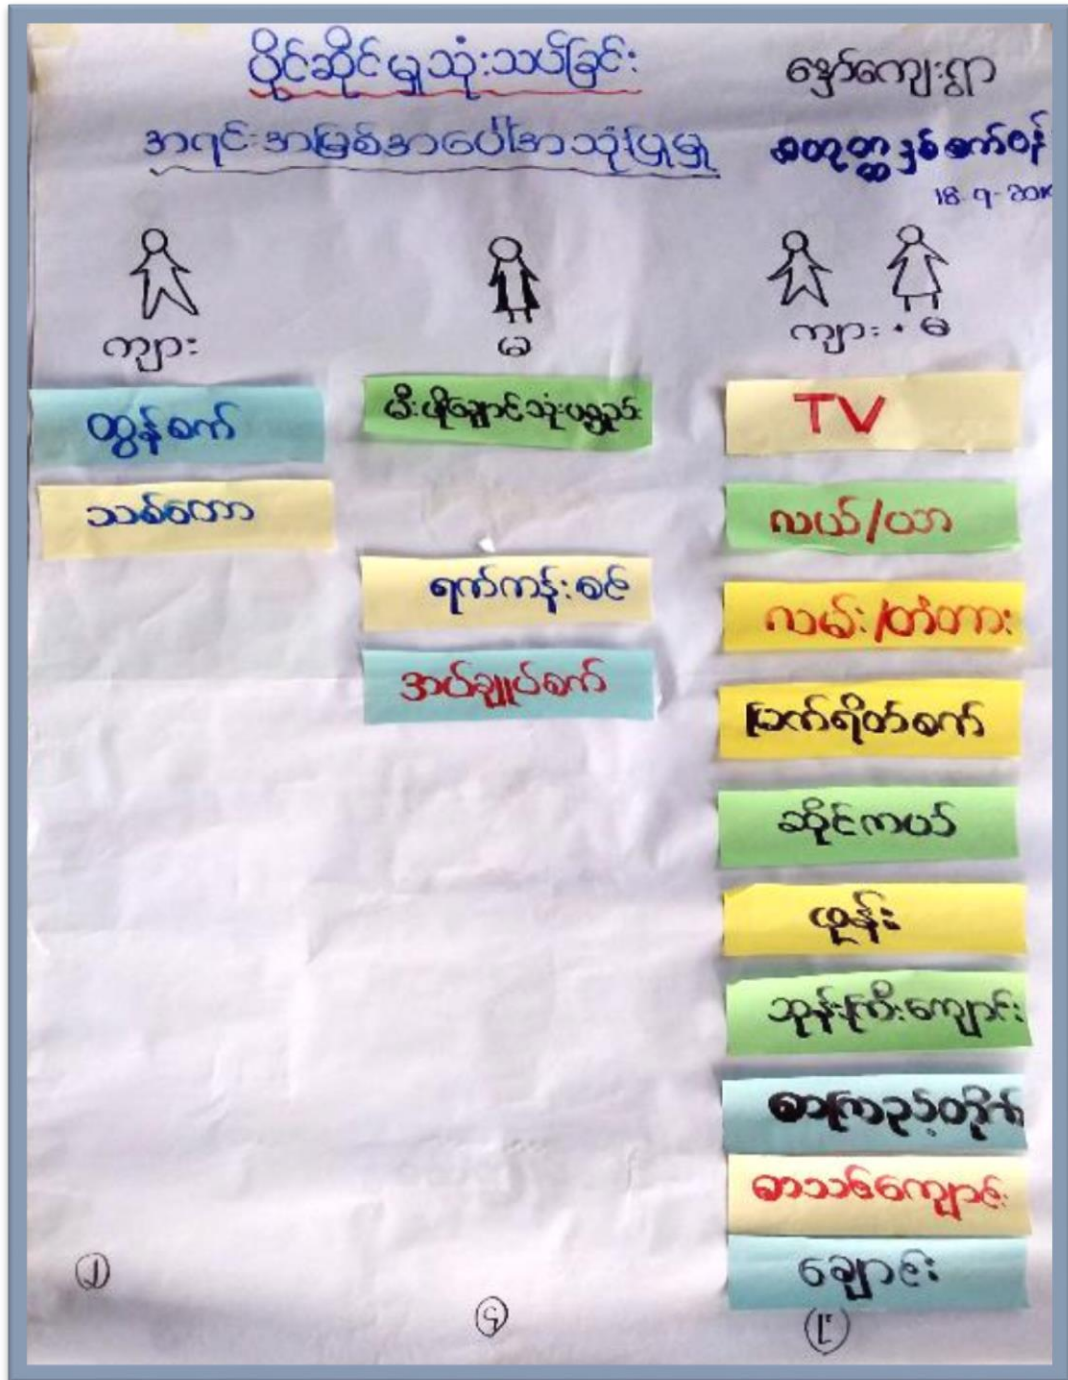 ပိုင်ဆိုင်မှုသုံးသပ်ခြင်း
အရင်းအမြစ်အပေါ်အသုံးပြုမှု
နှော်ကျေးရွာ
စတုတ္ထနှစ်စက်ဝန်
ကျား
မ
ကျား • မ
ထွန်စက်
သစ်တော
မီးဖိုချောင်သုံးပစ္စည်း
ရက်ကန်းစင်
အပ်ချုပ်စက်
TV
လယ်/ယာ
လမ်း/တံတား
မြက်ရိတ်စက်
ဆိုင်ကယ်
ဖုန်း
ဘုန်းကြီးကျောင်း
စာကြည့်တိုက်
စာသင်ကျောင်း
ချောင်း